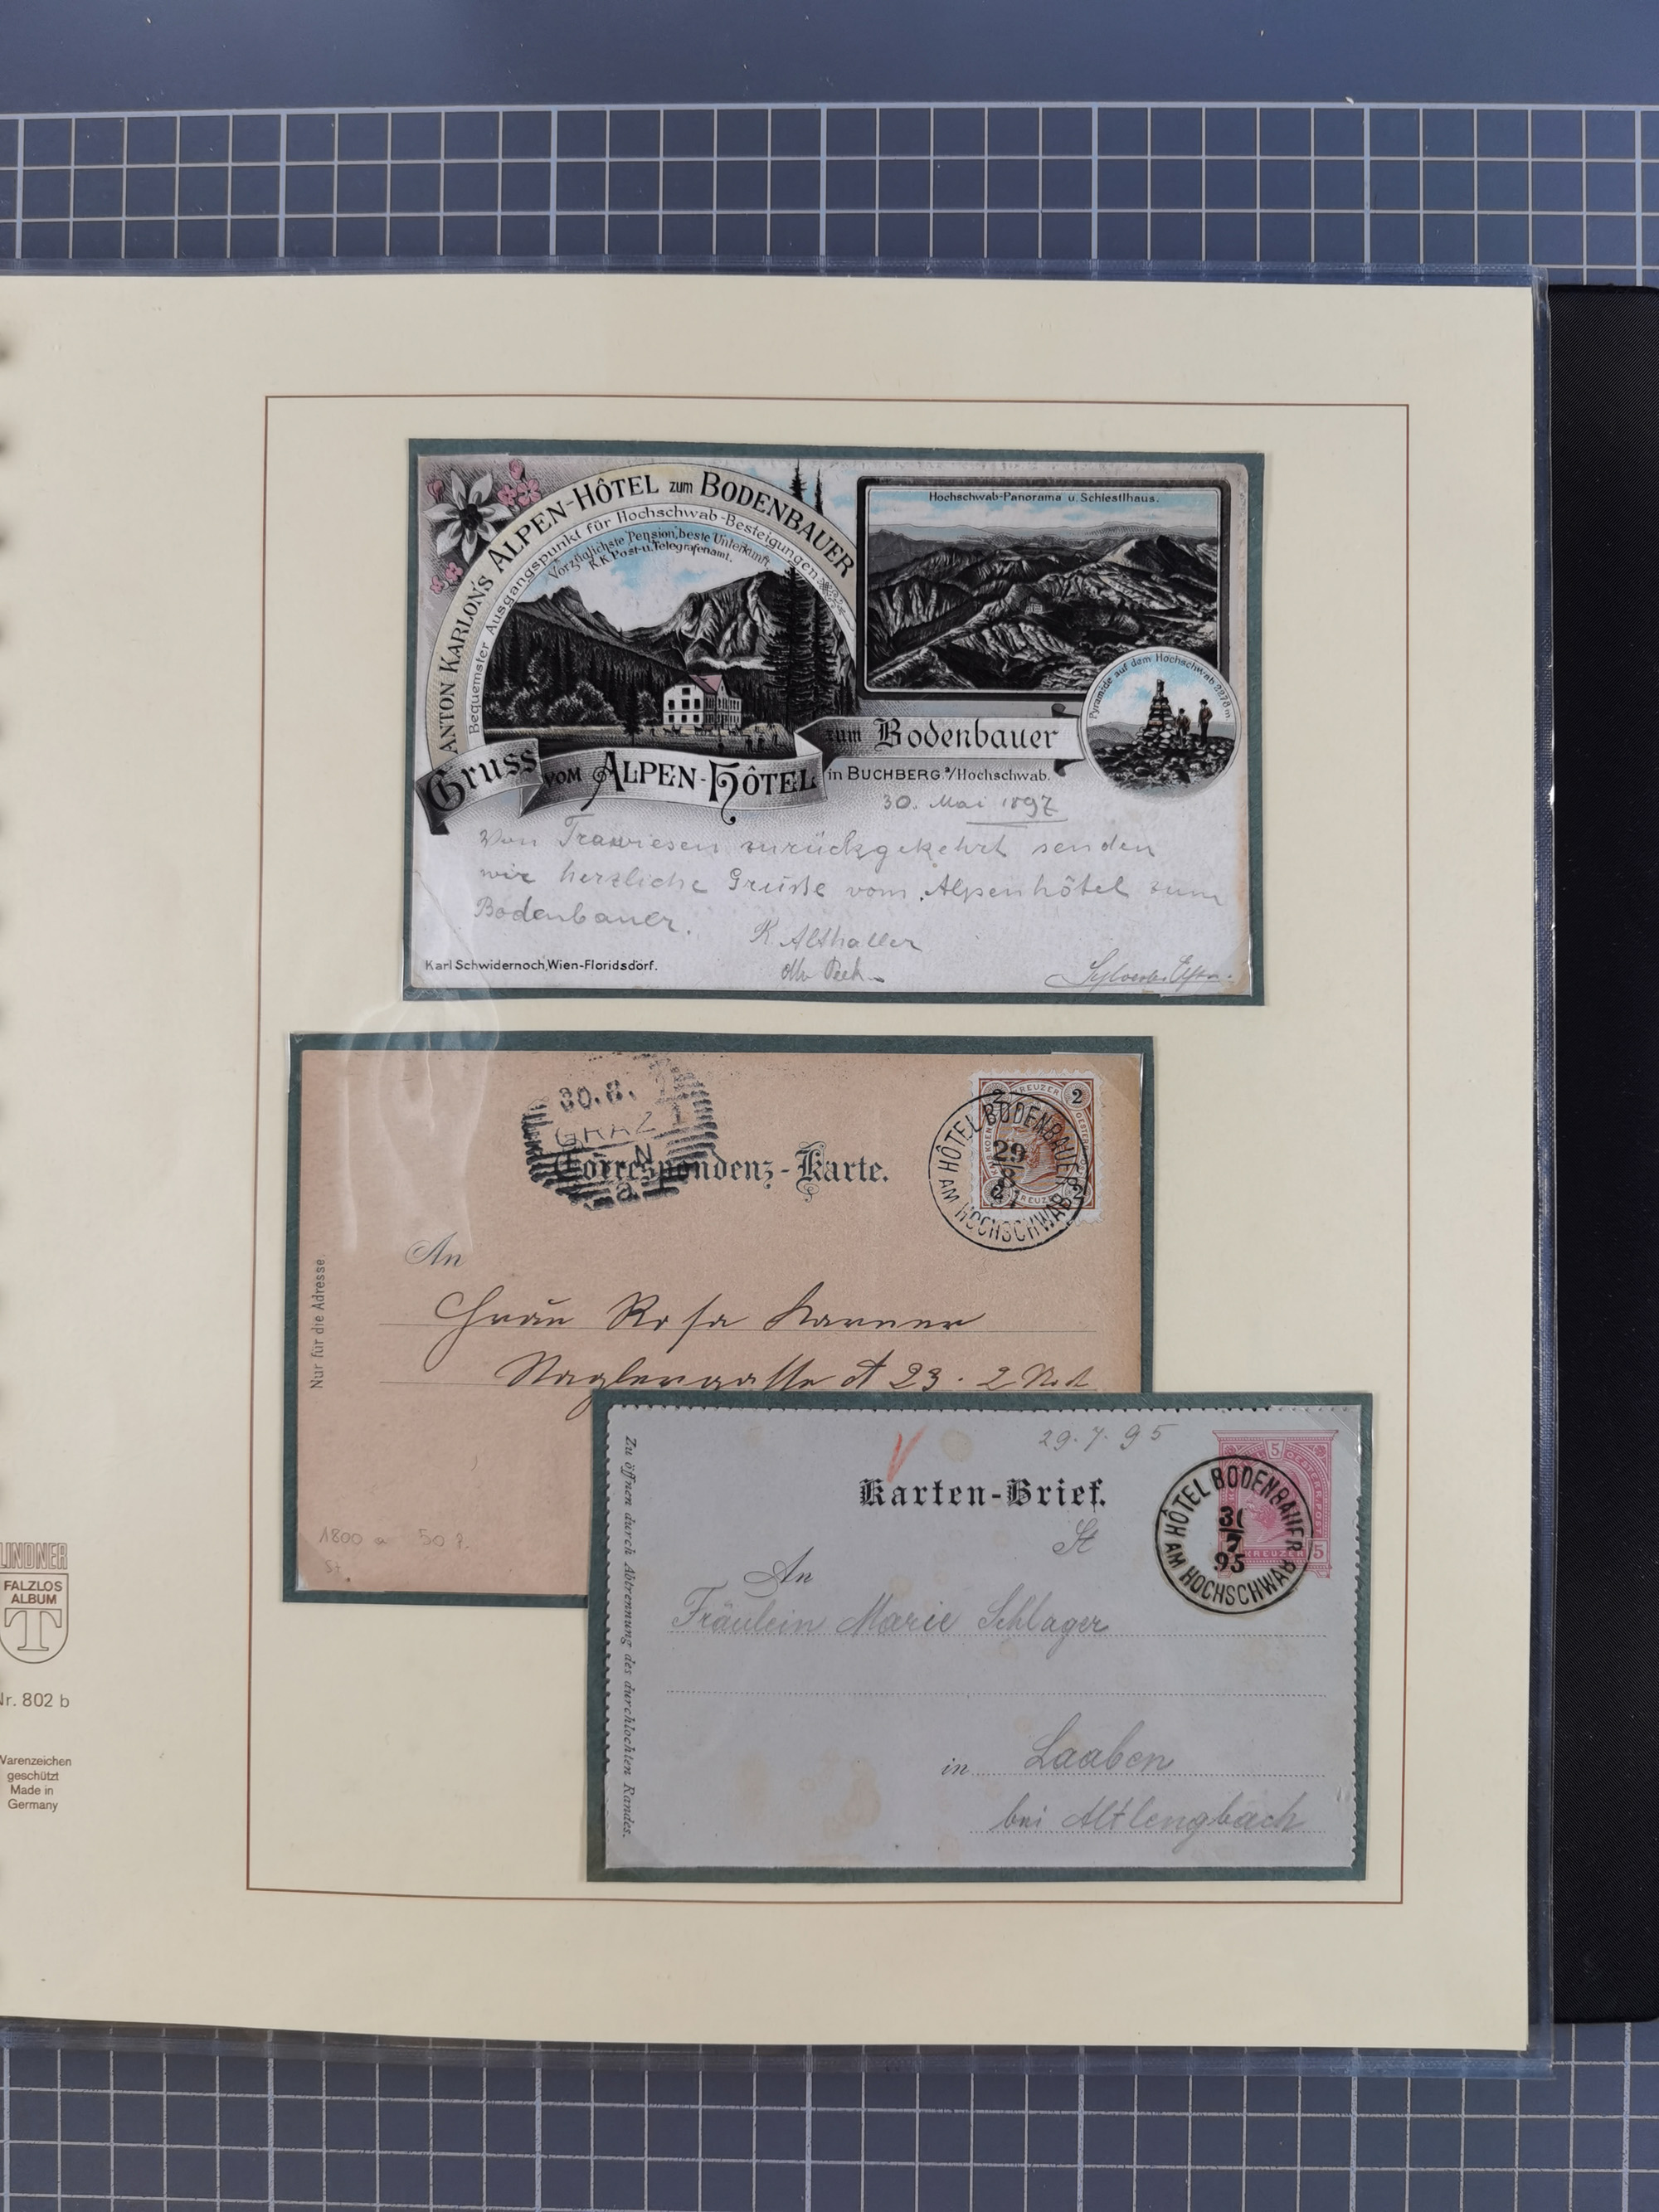 ANTON KARLON'S ALPEN-HÔTEL zum BODENBAUER
Bequemster Ausgangspunkt für Hochschwab-Besteigungen
Vorzüglichste Pension, beste Unterkunft
K.K. Post-u. Telegrafenamt.
Hochschwab-Panorama u. Schiestlhaus.
Pyramide auf dem Hochschwab 2278 m
Gruss vom ALPEN-HÔTEL zum Bodenbauer
in BUCHBERG a/Hochschwab.
30. Mai 1897
Von Trawiesen zurückgekehrt senden
wir herzliche Grüsse vom Alpenhôtel zum
Bodenbauer.
K. Althaller
Karl Schwidernoch, Wien-Floridsdorf.
30.8.
GRAZ
Correspondenz-Karte.
2 KREUZER 2
HÔTEL BODENBAUER
29
8
AM HOCHSCHWAB
An
Frau Rosa Karner
Naglergasse 23.
Nur für die Adresse.
1800 a 50 ?
St.
29.7.95
Karten-Brief.
St
5
KREUZER 5
HÔTEL BODENBAUER
31
7
95
AM HOCHSCHWAB
An
Fräulein Marie Schlager
in Laaben
bei Altlengbach
Zu öffnen durch Abtrennung des durchlochten Randes.
LINDNER
FALZLOS
ALBUM
T
Nr. 802 b
Warenzeichen
geschützt
Made in
Germany